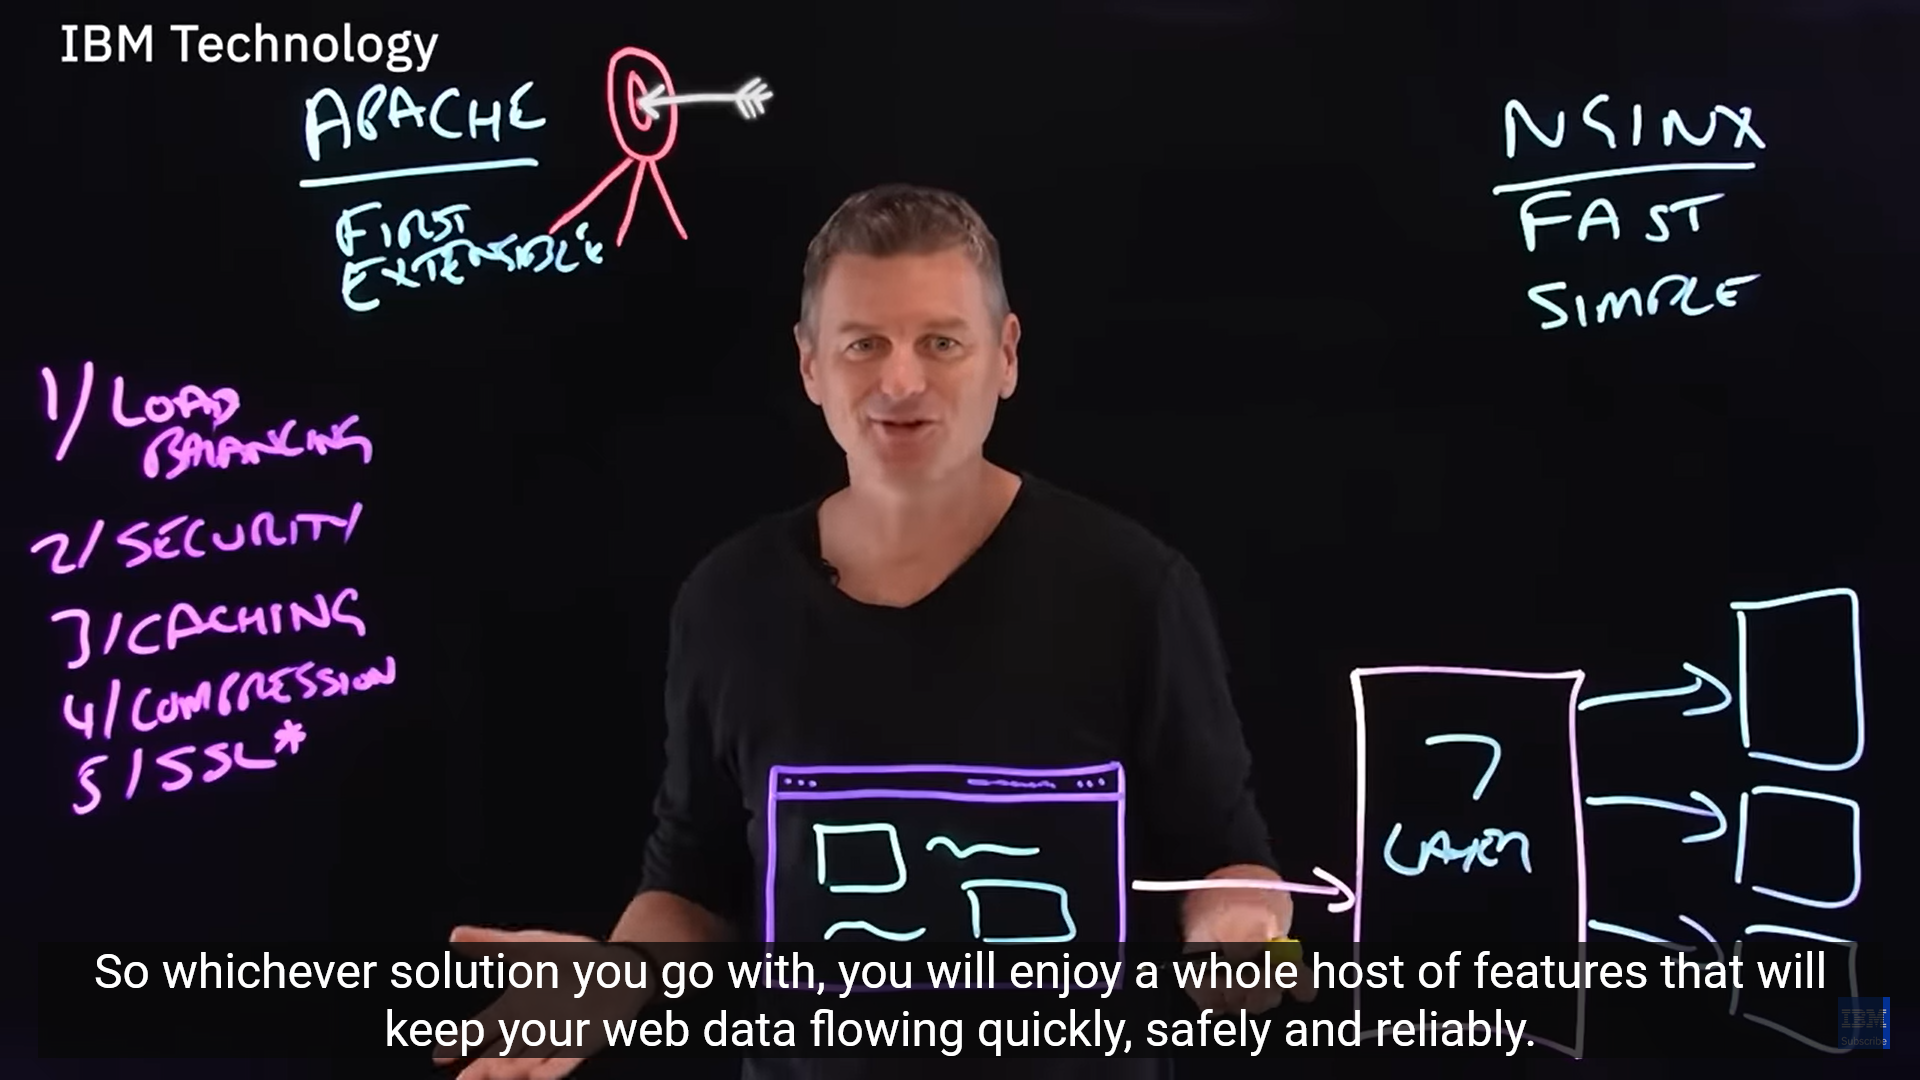 IBM Technology
APACHE
FIRST
EXTENSIBLE
NGINX
FAST
SIMPLE
1/ LOAD
BALANCING
2/ SECURITY
3/ CACHING
4/ COMPRESSION
5/ SSL*
7
LAYER
So whichever solution you go with, you will enjoy a whole host of features that will
keep your web data flowing quickly, safely and reliably.
IBM
Subscribe